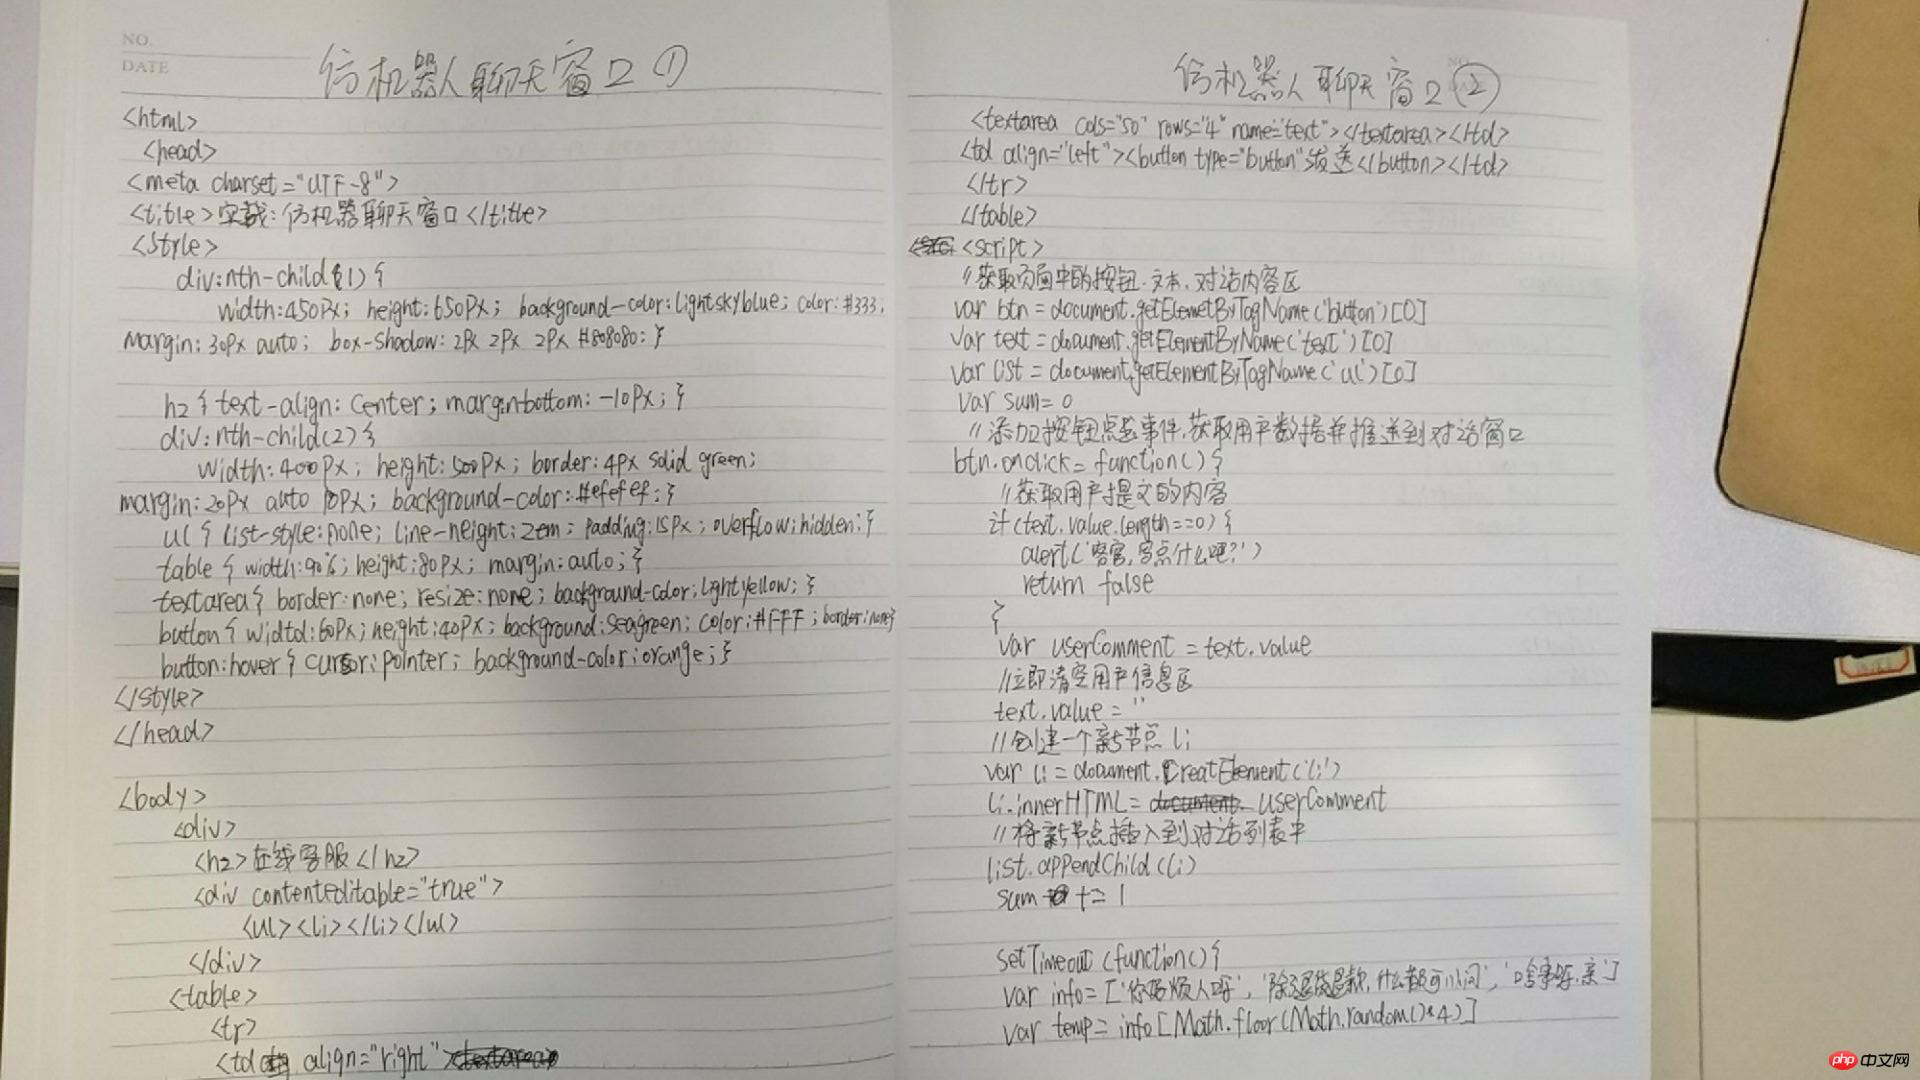 NO.
DATE
仿机器人聊天窗口①
<html>
<head>
<meta charset="UTF-8">
<title>实战:仿机器聊天窗口</title>
<style>
div:nth-child(1){
width:450px; height:650px; background-color:lightskyblue; color:#333;
margin:30px auto; box-shadow:2px 2px 2px #808080;}
h2{text-align:center; margin-bottom:-10px;}
div:nth-child(2){
width:400px; height:500px; border:4px solid green;
margin:20px auto 10px; background-color:#efefef;}
ul{list-style:none; line-height:2em; padding:15px; overflow:hidden;}
table{width:90%; height:80px; margin:auto;}
textarea{border:none; resize:none; background-color:lightyellow;}
button{widtd:60px; height:40px; background:seagreen; color:#FFF; border:none}
button:hover{cursor:pointer; background-color:orange;}
</style>
</head>
<body>
<div>
<h2>在线客服</h2>
<div contenteditable="true">
<ul><li></li></ul>
</div>
<table>
<tr>
<td align="right">
仿机器人聊天窗口②
<textarea cols="50" rows="4" name="text"></textarea></td>
<td align="left"><button type="button">发送</button></td>
</tr>
</table>
<script>
//获取页面中的按钮.文本.对话内容区
var btn = document.getElemetByTagName('button')[0]
var text = document.getElementByName('text')[0]
var list = document.getElementByTagName('ul')[0]
var sum=0
//添加按钮点击事件.获取用户数据并推送到对话窗口
btn.onclick = function(){
//获取用户提交的内容
if(text.value.length==0){
alert('客官,写点什么吧?')
return false
}
var userComment = text.value
//立即清空用户信息区
text.value = ''
//创建一个新节点li
var li = document.CreatElement('li')
li.innerHTML= userComment
//将新节点插入到对话列表中
list.appendChild(li)
sum += 1
setTimeout(function(){
var info=['你好烦人呀','除退货退款,什么都可以问','啥事呀.亲']
var temp= info[Math.floor(Math.random()*4)]
php中文网